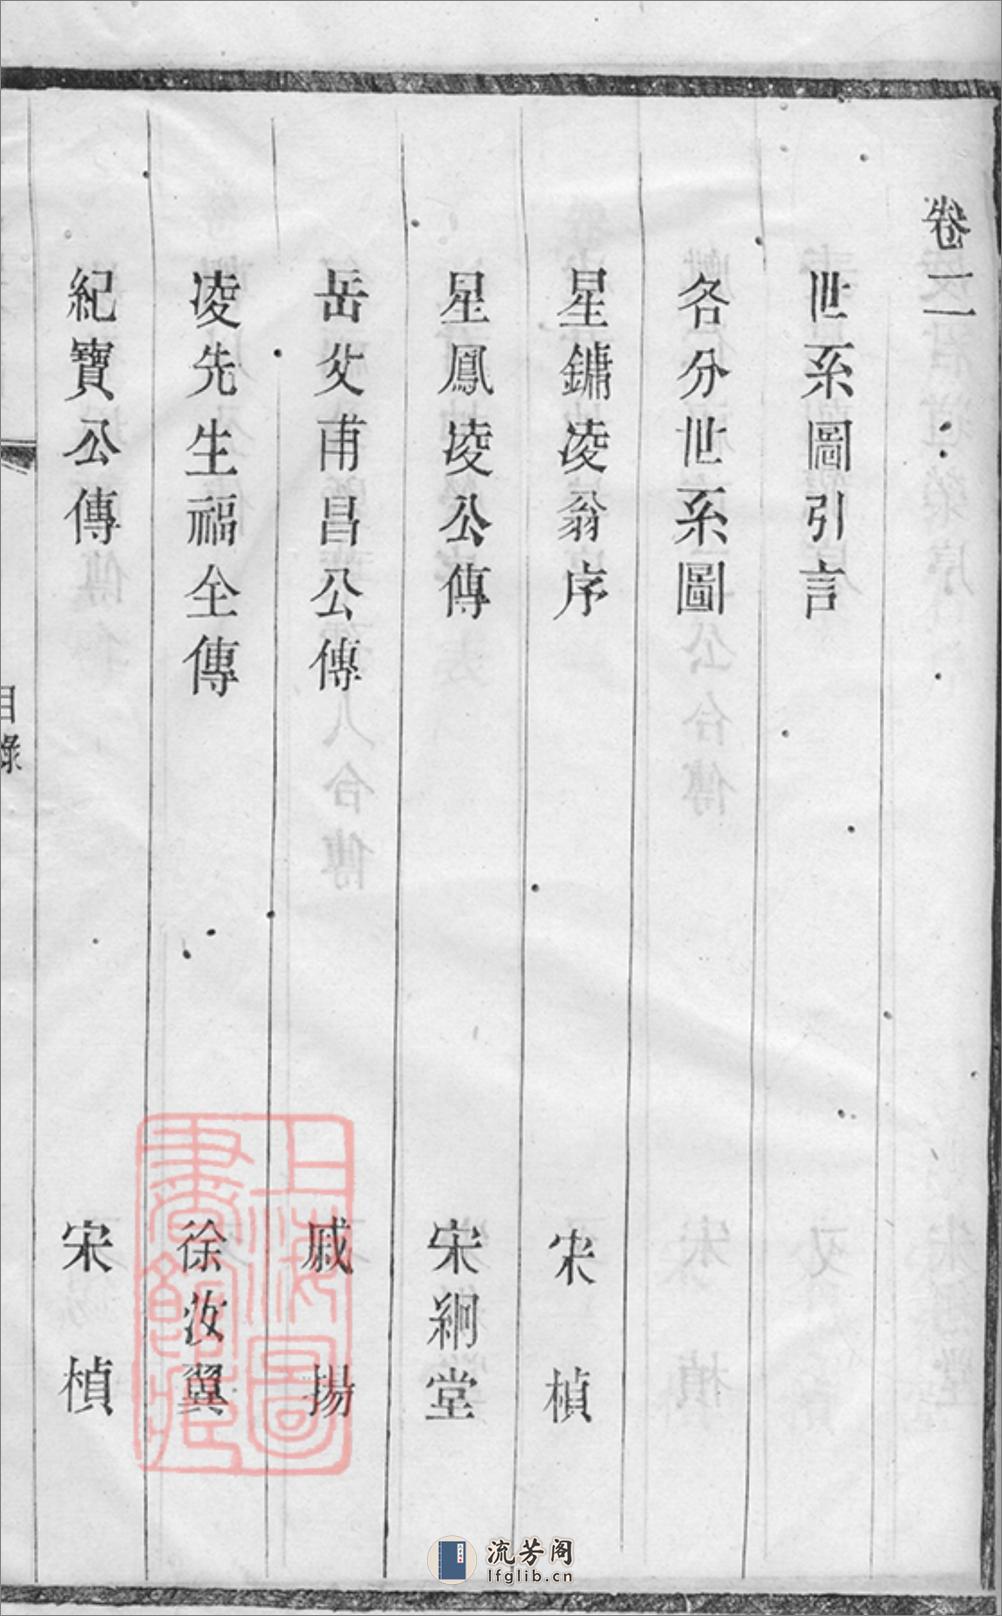 卷二
世系圖引言
各分世系圖
星鏞凌翁序 宋楨
星鳳凌公傳 宋絅堂
岳父甫昌公傳 戚揚
凌先生福全傳 徐汝翼
紀寶公傳 宋楨
目錄
上海圖書館藏
流芳阁
lfglib.cn